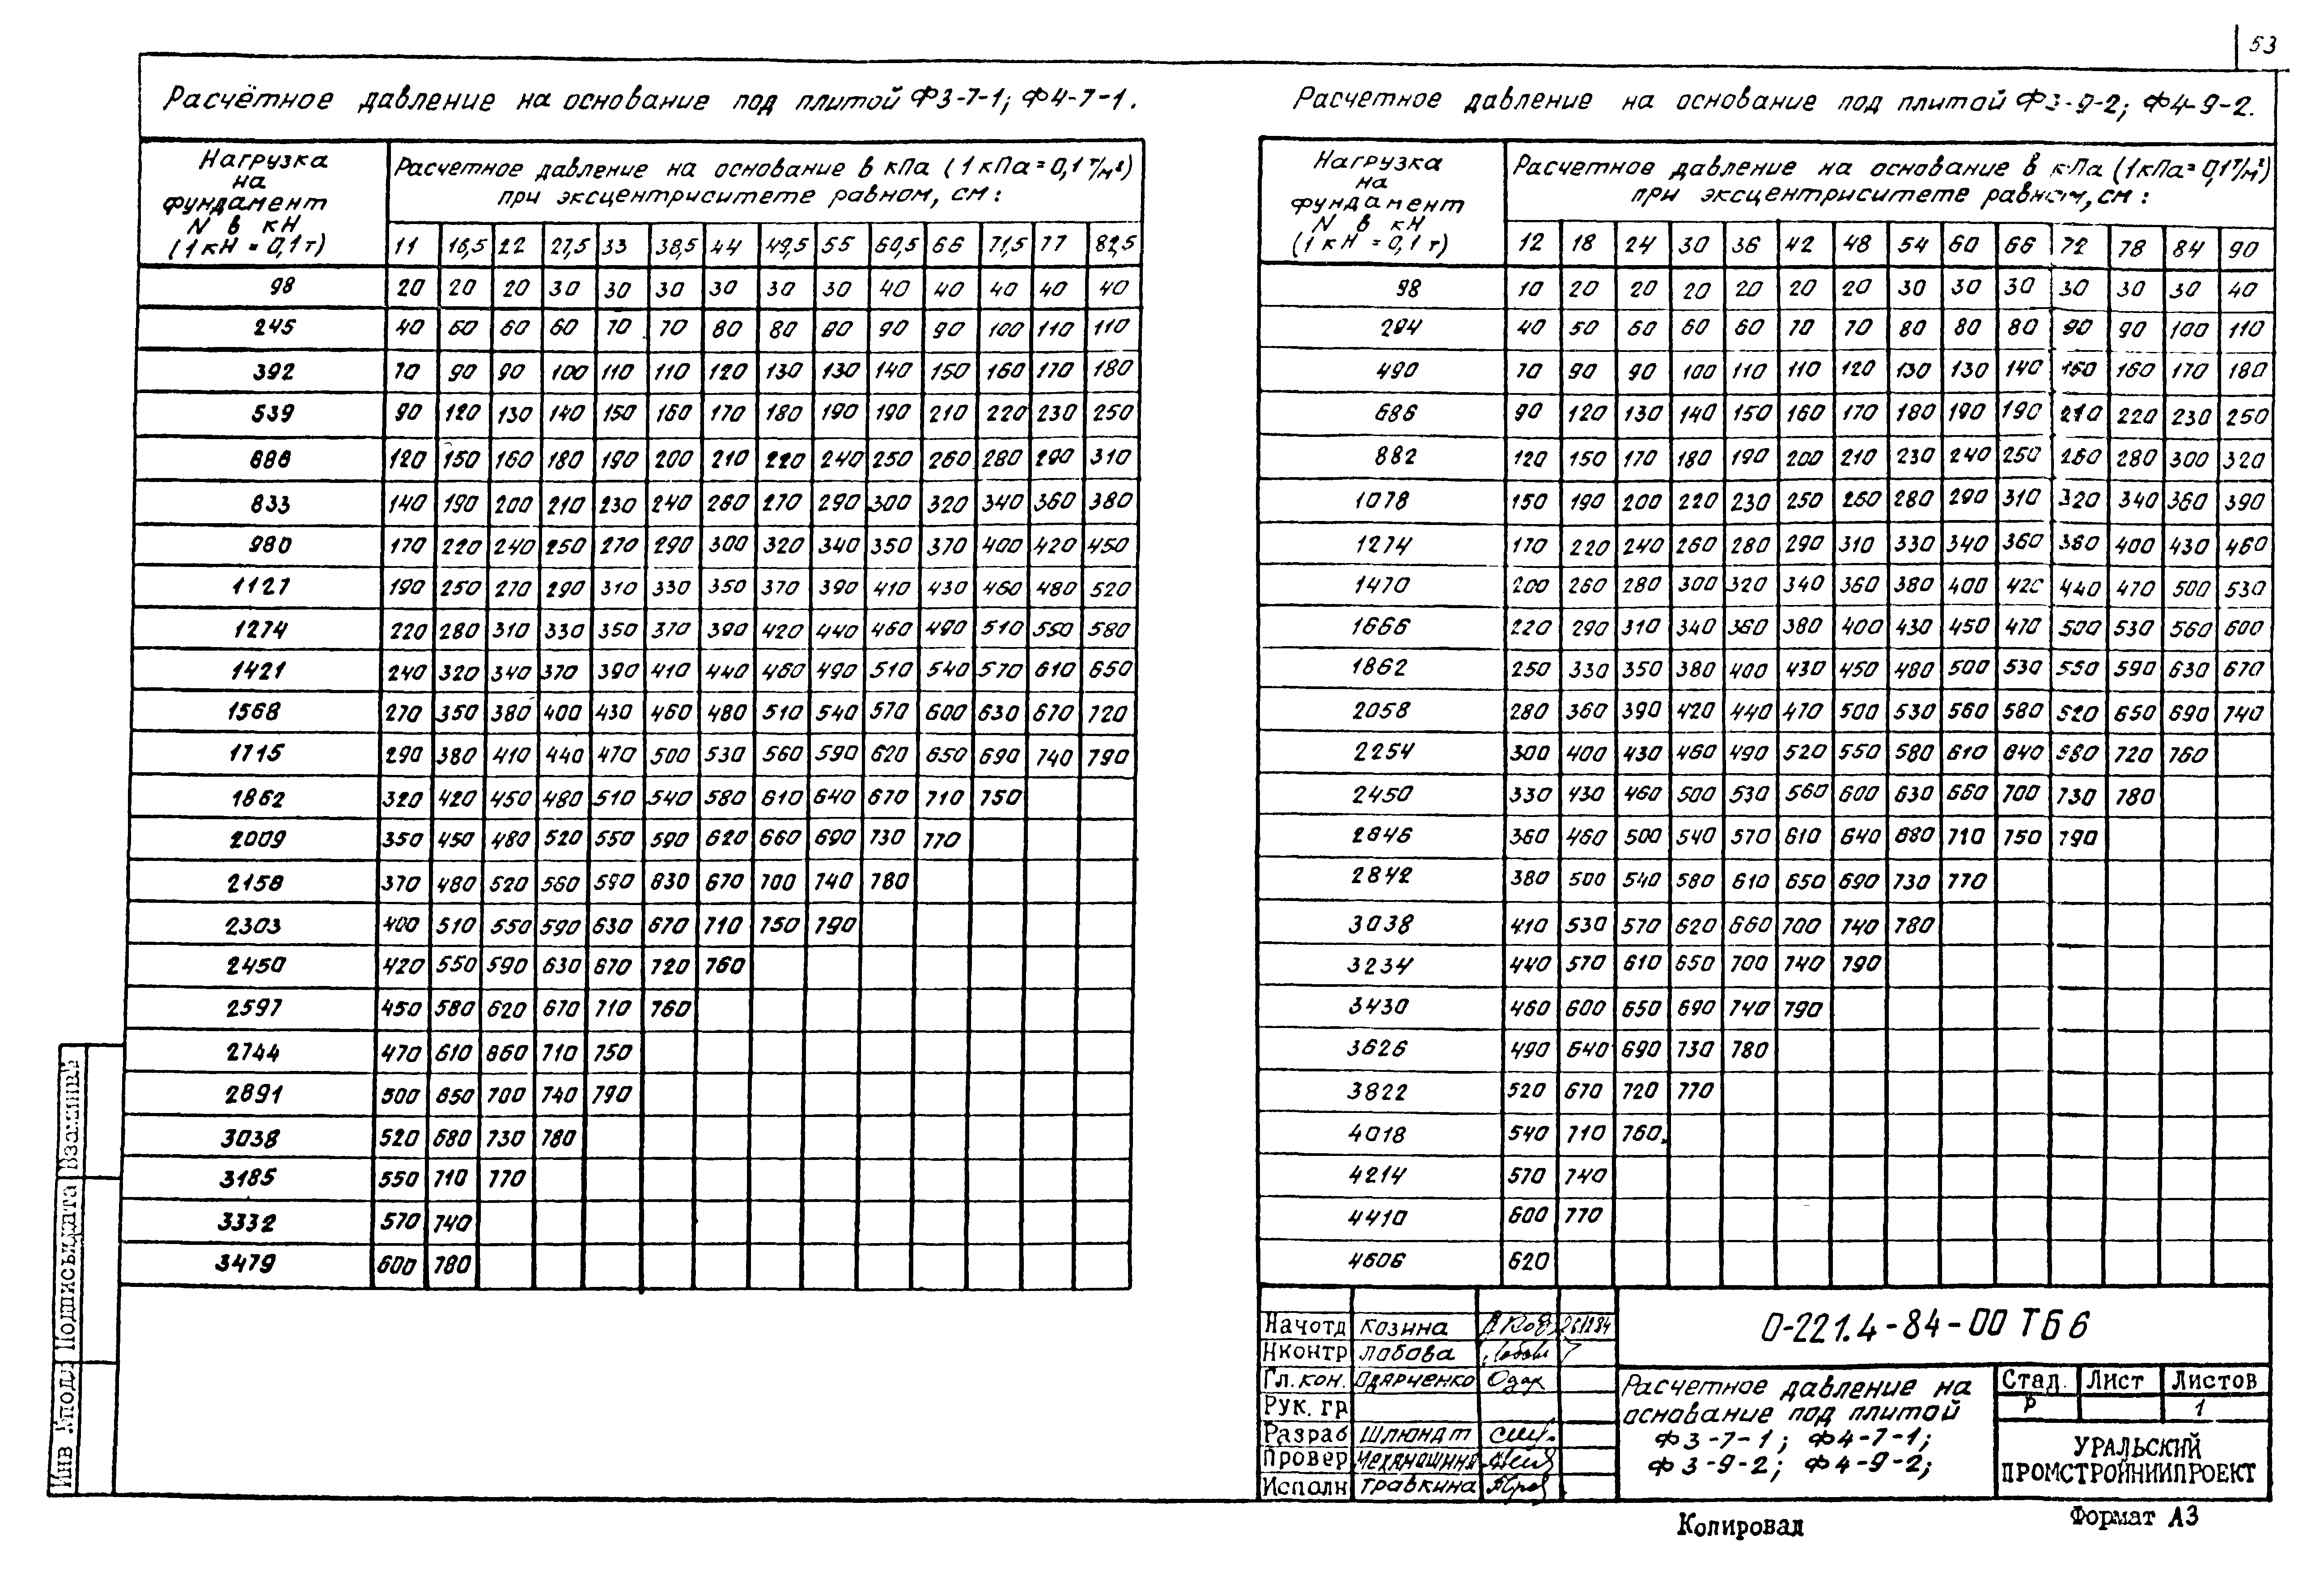 53
Расчётное давление на основание под плитой Ф3-7-1; Ф4-7-1.
Нагрузка на фундамент N в кН (1кН = 0,1т)
Расчетное давление на основание в кПа (1кПа=0,1т/м²)
при эксцентриситете равном, см:
11 16,5 22 27,5 33 38,5 44 49,5 55 60,5 66 71,5 77 82,5
98 20 20 20 30 30 30 30 30 30 40 40 40 40 40
245 40 60 60 60 70 70 80 80 80 90 90 100 110 110
392 70 90 90 100 110 110 120 130 130 140 150 160 170 180
539 90 120 130 140 150 160 170 180 190 190 210 220 230 250
686 120 150 160 180 190 200 210 220 240 250 260 280 290 310
833 140 190 200 210 230 240 260 270 290 300 320 340 360 380
980 170 220 240 250 270 290 300 320 340 350 370 400 420 450
1127 190 250 270 290 310 330 350 370 390 410 430 460 480 520
1274 220 280 310 330 350 370 390 420 440 460 490 510 550 580
1421 240 320 340 370 390 410 440 460 490 510 540 570 610 650
1568 270 350 380 400 430 460 480 510 540 570 600 630 670 720
1715 290 380 410 440 470 500 530 560 590 620 650 690 740 790
1862 320 420 450 480 510 540 580 610 640 670 710 750
2009 350 450 480 520 550 590 620 660 690 730 770
2156 370 480 520 560 590 630 670 700 740 780
2303 400 510 550 590 630 670 710 750 790
2450 420 550 590 630 670 720 760
2597 450 580 620 670 710 760
2744 470 610 660 710 750
2891 500 650 700 740 790
3038 520 680 730 780
3185 550 710 770
3332 570 740
3479 600 780
Расчетное давление на основание под плитой Ф3-9-2; Ф4-9-2.
Нагрузка на фундамент N в кН (1кН = 0,1т)
Расчетное давление на основание в кПа (1кПа=0,1т/м²)
при эксцентриситете равном, см:
12 18 24 30 36 42 48 54 60 66 72 78 84 90
98 10 20 20 20 20 20 20 30 30 30 30 30 30 40
294 40 50 60 60 60 70 70 80 80 80 90 90 100 110
490 70 90 90 100 110 110 120 130 130 140 150 160 170 180
686 90 120 130 140 150 160 170 180 190 190 210 220 230 250
882 120 150 170 180 190 200 210 230 240 250 260 280 300 320
1078 150 190 200 220 230 250 260 280 290 310 320 340 360 390
1274 170 220 240 260 280 290 310 330 340 360 380 400 430 460
1470 200 260 280 300 320 340 360 380 400 420 440 470 500 530
1666 220 290 310 340 360 380 400 430 450 470 500 530 560 600
1862 250 330 350 380 400 430 450 480 500 530 550 590 630 670
2058 280 360 390 420 440 470 500 530 560 580 620 650 690 740
2254 300 400 430 460 490 520 550 580 610 640 680 720 760
2450 330 430 460 500 530 560 600 630 660 700 730 780
2646 360 460 500 540 570 610 640 680 710 750 790
2842 380 500 540 580 610 650 690 730 770
3038 410 530 570 620 660 700 740 780
3234 440 570 610 650 700 740 790
3430 460 600 650 690 740 790
3626 490 640 690 730 780
3822 520 670 720 770
4018 540 710 760
4214 570 740
4410 600 770
4606 620
Инв №подл Подпись и дата Взам инв №
Начотд Козина
Нконтр Лобова
Гл.кон. Одарченко
Рук. гр
Разраб Шлюндт
Провер Механошина
Исполн Травкина
0-221.4-84-00 ТБ6
Расчетное давление на
основание под плитой
Ф3-7-1; Ф4-7-1;
Ф3-9-2; Ф4-9-2;
Стад. Лист Листов
Р 1
УРАЛЬСКИЙ
ПРОМСТРОЙНИИПРОЕКТ
Копировал
Формат А3